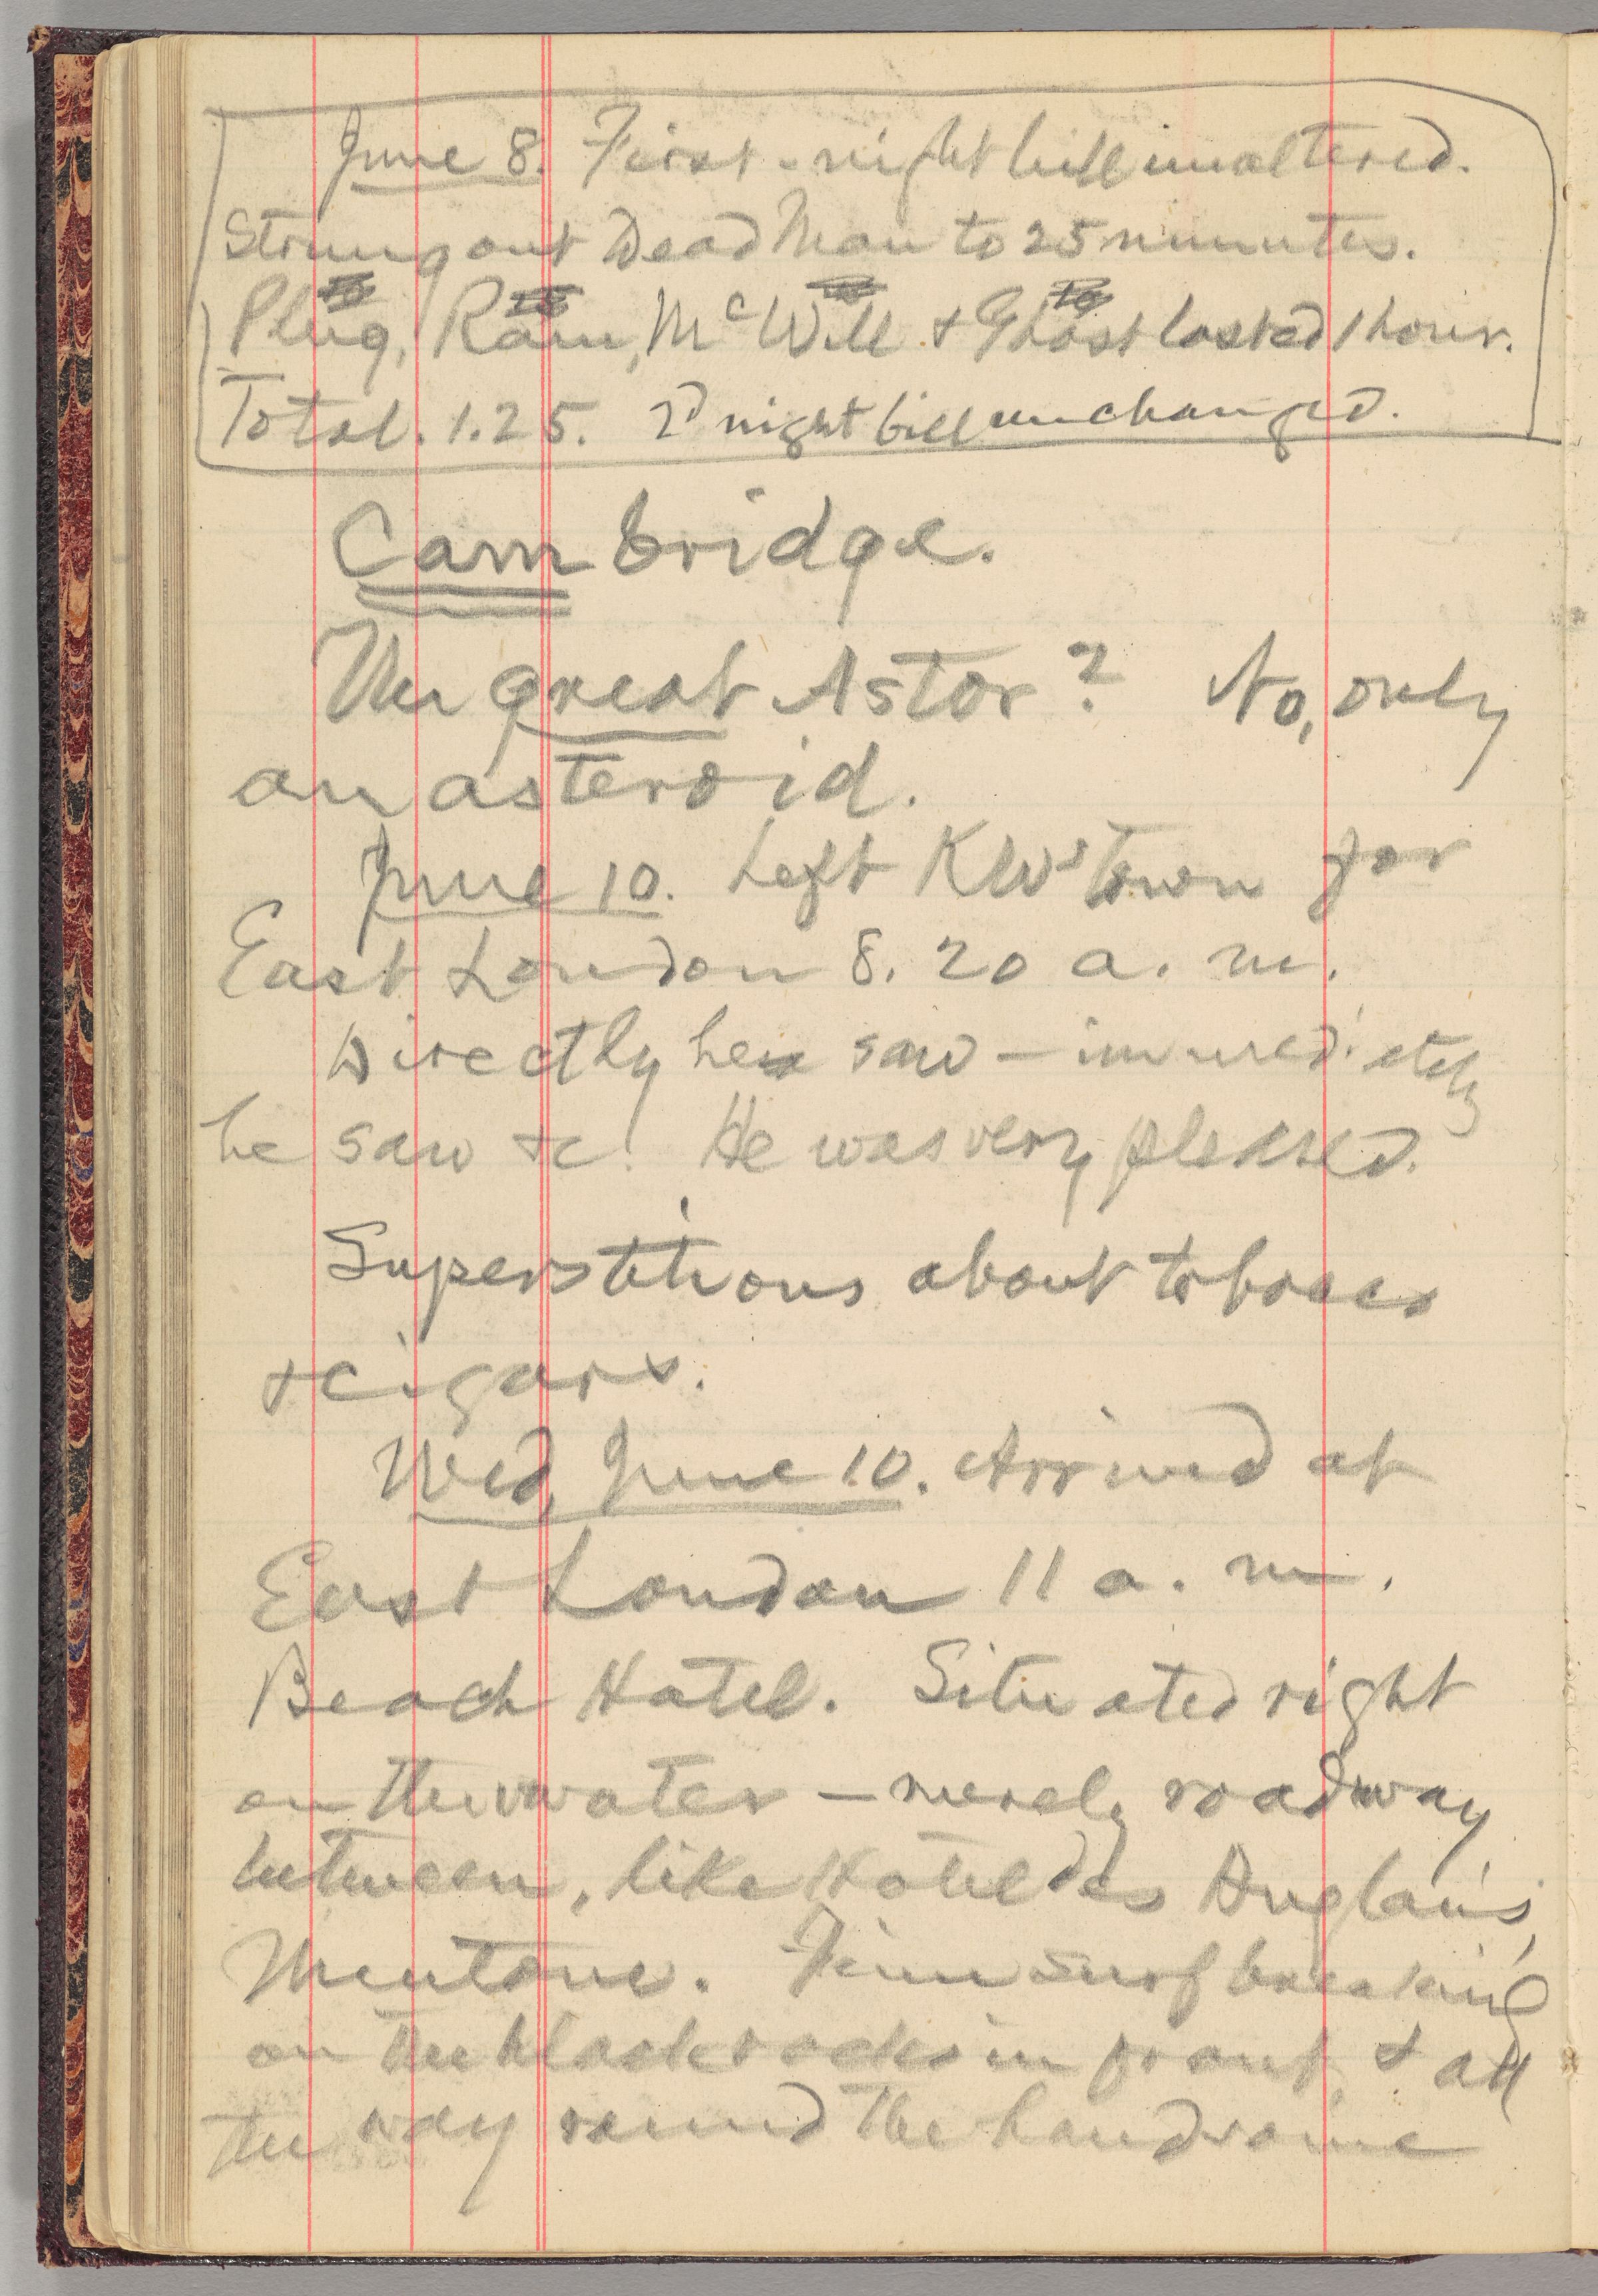 June 8. First-night bill unaltered.
Strung out Dead Man to 25 minutes.
Plug, Ram, McWill & Ghost lasted 1 hour.
Total. 1.25. 2d night bill unchanged.
Cambridge.
The great Astor? No, only
an asteroid.
June 10. Left KWsTown for
East London 8.20 a. m.
Directly he saw — immediately
he saw &c! He was very pleased.
Superstitions about tobacco
& cigars.
Wed, June 10. Arrived at
East London 11 a. m.
Beach Hotel. Situated right
on the water — merely roadway
between, like Hotel des Anglais,
Mentone. Fine surf breaking
on the black rocks in front, & all
the way round the handsome